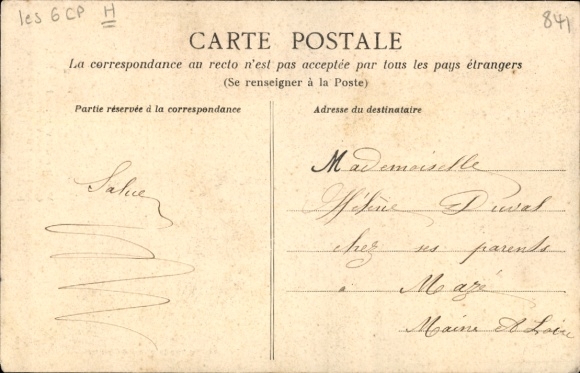 les 6 CP H
841
CARTE POSTALE
La correspondance au recto n'est pas acceptée par tous les pays étrangers
(Se renseigner à la Poste)
Partie réservée à la correspondance
Adresse du destinataire
Salue
Mademoiselle
Hélène Duval
chez ses parents
à Mazé
Maine & Loire